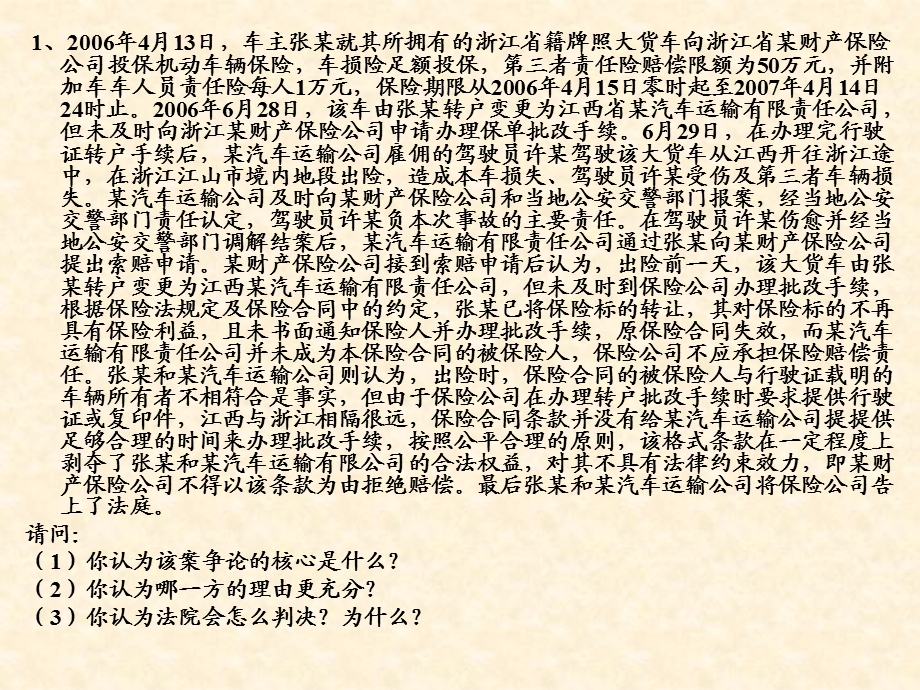 1、2006年4月13日，车主张某就其所拥有的浙江省籍牌照大货车向浙江省某财产保险
公司投保机动车辆保险，车损险足额投保，第三者责任险赔偿限额为50万元，并附
加车车人员责任险每人1万元，保险期限从2006年4月15日零时起至2007年4月14日
24时止。2006年6月28日，该车由张某转户变更为江西省某汽车运输有限责任公司，
但未及时向浙江某财产保险公司申请办理保单批改手续。6月29日，在办理完行驶
证转户手续后，某汽车运输公司雇佣的驾驶员许某驾驶该大货车从江西开往浙江途
中，在浙江江山市境内地段出险，造成本车损失、驾驶员许某受伤及第三者车辆损
失。某汽车运输公司及时向某财产保险公司和当地公安交警部门报案，经当地公安
交警部门责任认定，驾驶员许某负本次事故的主要责任。在驾驶员许某伤愈并经当
地公安交警部门调解结案后，某汽车运输有限责任公司通过张某向某财产保险公司
提出索赔申请。某财产保险公司接到索赔申请后认为，出险前一天，该大货车由张
某转户变更为江西某汽车运输有限责任公司，但未及时到保险公司办理批改手续，
根据保险法规定及保险合同中的约定，张某已将保险标的转让，其对保险标的不再
具有保险利益，且未书面通知保险人并办理批改手续，原保险合同失效，而某汽车
运输有限责任公司并未成为本保险合同的被保险人，保险公司不应承担保险赔偿责
任。张某和某汽车运输公司则认为，出险时，保险合同的被保险人与行驶证载明的
车辆所有者不相符合是事实，但由于保险公司在办理转户批改手续时要求提供行驶
证或复印件，江西与浙江相隔很远，保险合同条款并没有给某汽车运输公司提提供
足够合理的时间来办理批改手续，按照公平合理的原则，该格式条款在一定程度上
剥夺了张某和某汽车运输有限公司的合法权益，对其不具有法律约束效力，即某财
产保险公司不得以该条款为由拒绝赔偿。最后张某和某汽车运输公司将保险公司告
上了法庭。
请问：
（1）你认为该案争论的核心是什么？
（2）你认为哪一方的理由更充分？
（3）你认为法院会怎么判决？为什么？